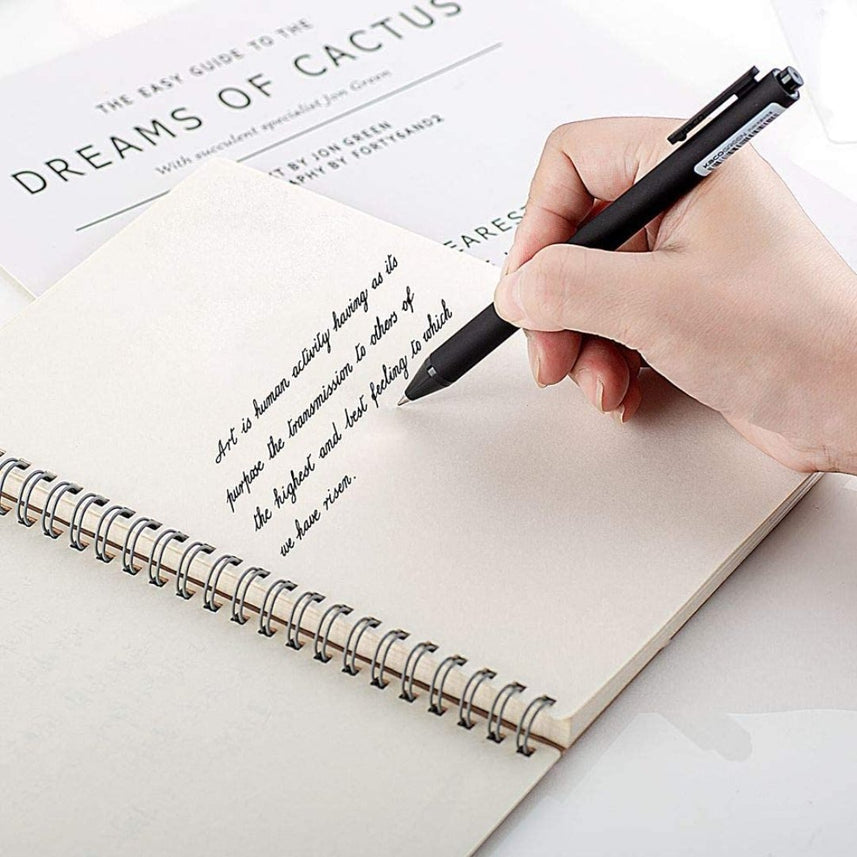 THE EASY GUIDE TO THE
DREAMS OF CACTUS
With succulent specialist Jon Green
BY JON GREEN
BY FORTYSAND2
Art is human activity having as its
purpose the transmission to others of
the highest and best feeling to which
we have risen.
KACO